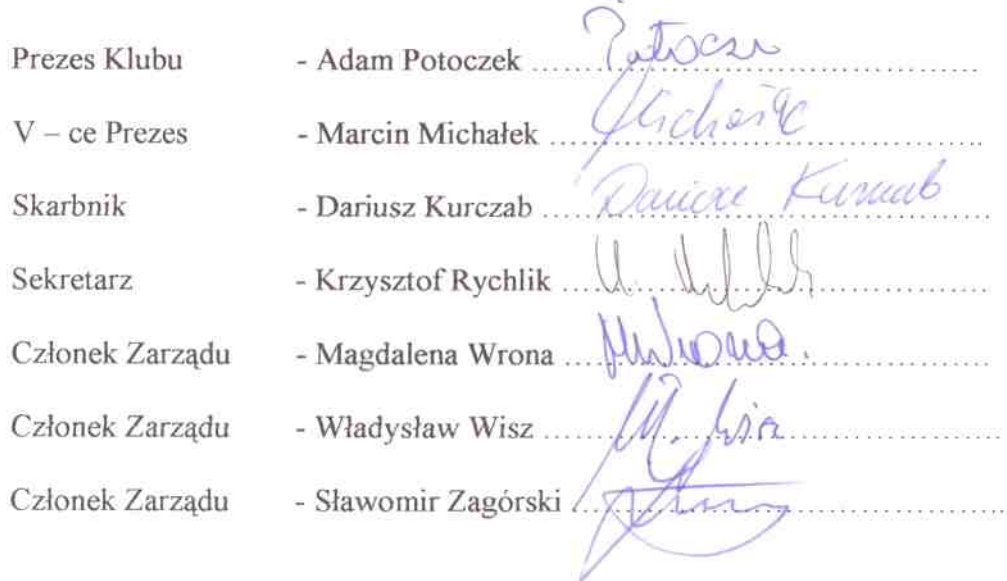 Prezes Klubu - Adam Potoczek ........ Potocze
V – ce Prezes - Marcin Michałek ........
Skarbnik - Dariusz Kurczab ........ Dariusz Kurczab
Sekretarz - Krzysztof Rychlik ........
Członek Zarządu - Magdalena Wrona ........ MWrona.
Członek Zarządu - Władysław Wisz ........
Członek Zarządu - Sławomir Zagórski ........